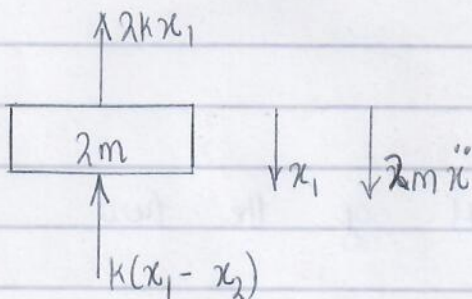 2kx₁
2m
x₁
2mẍ
k(x₁ - x₂)